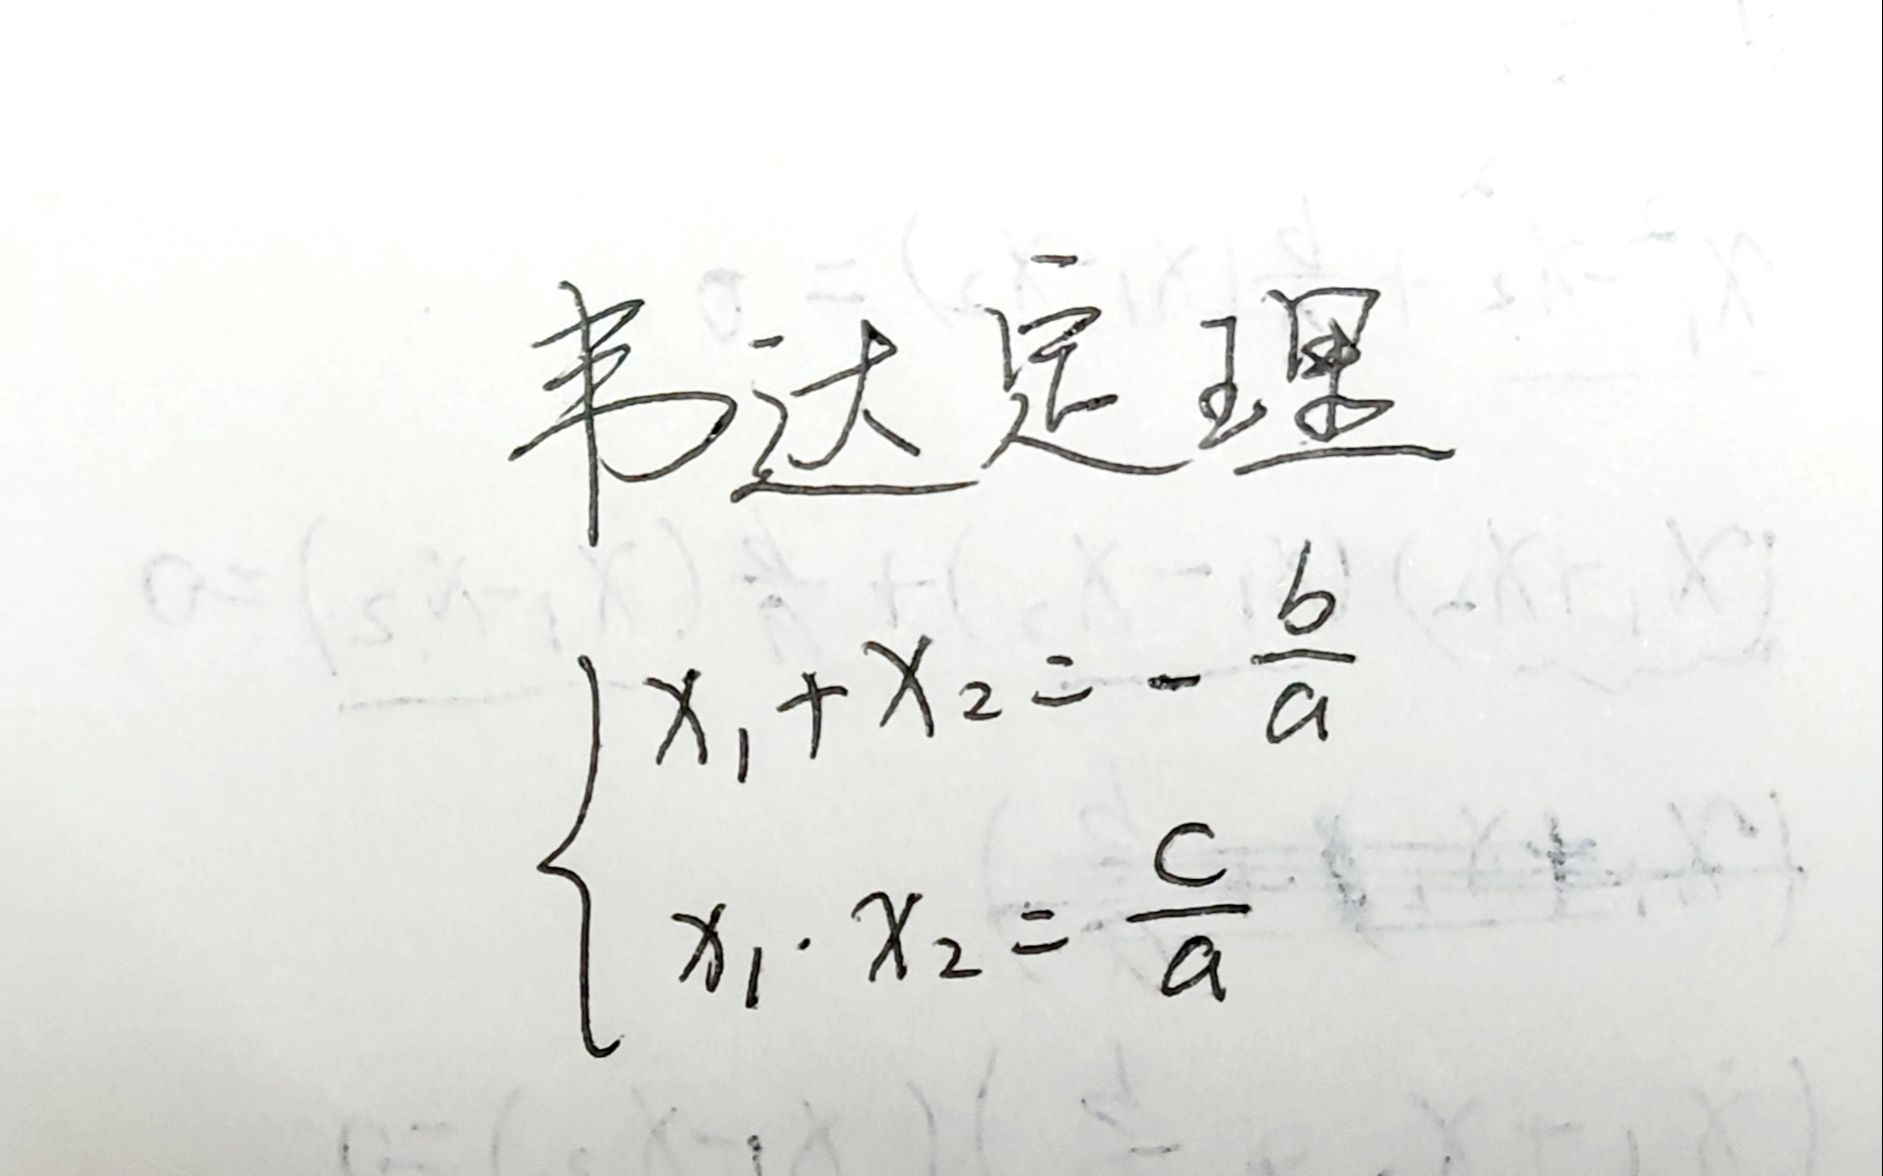 韦达定理
x₁+x₂=-b/a
x₁·x₂=c/a